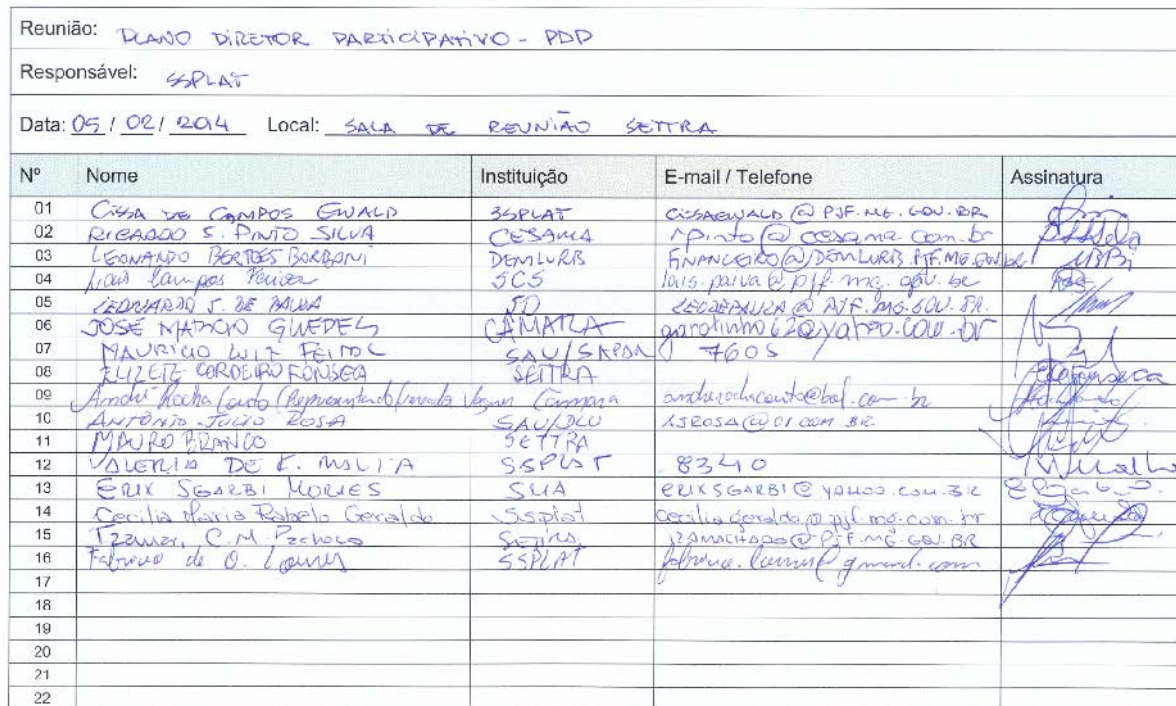 Reunião: PLANO DIRETOR PARTICIPATIVO - PDP
Responsável: SSPLAT
Data: 05 / 02 / 2014 Local: SALA DE REUNIÃO SETTRA
Nº Nome Instituição E-mail / Telefone Assinatura
01 CISSA DE CAMPOS EWALD SSPLAT CISSAEWALD@PJF.MG.GOV.BR
02 RICARDO S. PINTO SILVA CESAMA rpinto@cesama.com.br
03 LEONARDO BERTÓES BORBONI DEMLURB FINANCEIRO@DEMLURB.PJF.MG.GOV.BR
04 Laís Campos SCS lais.paiva@pjf.mg.gov.br
05 LEONARDO J. DE PAIVA SO
06 JOSÉ MÁRCIO GUEDES CÂMARA garotinho620yahoo.com.br
07 MAURICIO LUIZ SAU/ 7605
08 ELIZETE CORDEIRO FONSECA SETTRA
09 André Rocha Couto (Representando Vagner Câmara androchacouto@bol.com.br
10 ANTÔNIO JÚLIO ROSA SAU/DLU AJROSA@OI.COM.BR
11 MAURO BRANCO SETTRA
12 VALERIA DE F. SSPLAT 8340
13 ERIX SGARBI SMA ERIXSGARBI@YAHOO.COM.BR
14 Cecilia Maria Rabelo Geraldo Ssplat cecilia geraldo@pjf.mg.com.br
15 C.M. Settra IZAMACHADO@PJF.MG.GOV.BR
16 Fabrício de O. SSPLAT gmail.com
17
18
19
20
21
22